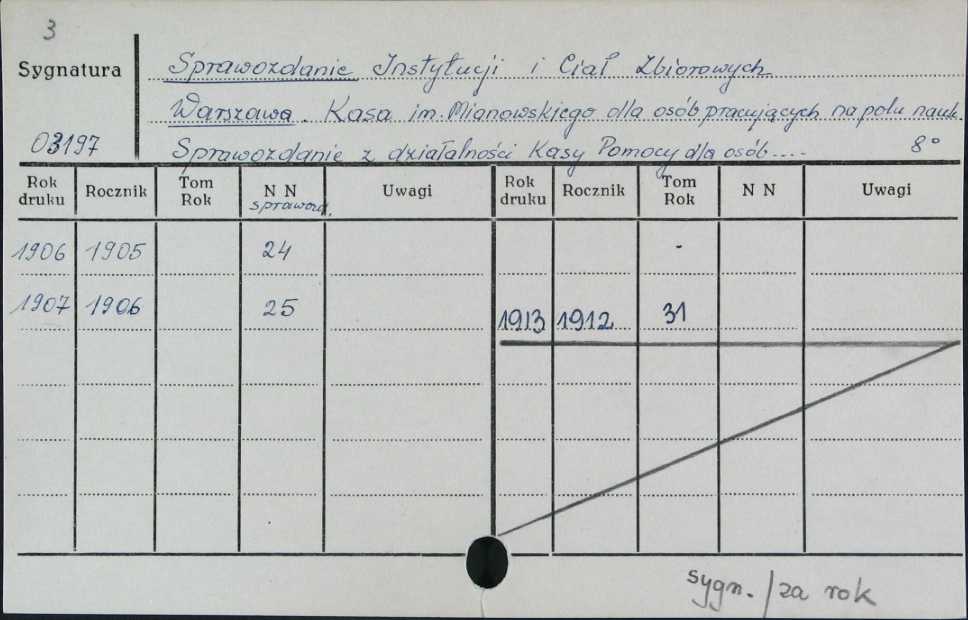 3
Sygnatura
Sprawozdanie Instytucji i Ciał Zbiorowych
Warszawa. Kasa im. Mianowskiego dla osób pracujących na polu nauk.
03197
Sprawozdanie z działalności Kasy Pomocy dla osób.... 8°
Rok druku Rocznik Tom Rok N N sprawozd. Uwagi Rok druku Rocznik Tom Rok N N Uwagi
1906 1905 24 -
1907 1906 25
1913 1912 31
sygn. / za rok